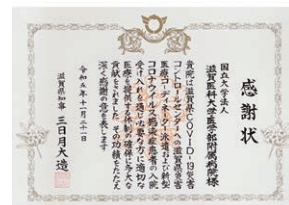 感謝状
国立大学法人
滋賀医科大学医学部附属病院様
貴院は滋賀県COVID-19災害
コントロールセンターへの滋賀県災害
医療コーディネーター派遣および新型
コロナウイルス感染症患者の入院
受け入れを通じ必要な方に適切な
医療を提供する体制の確保に多大な
貢献をされました その功績をたたえ
深く感謝の意を表します
令和五年十一月二十一日
滋賀県知事 三日月大造